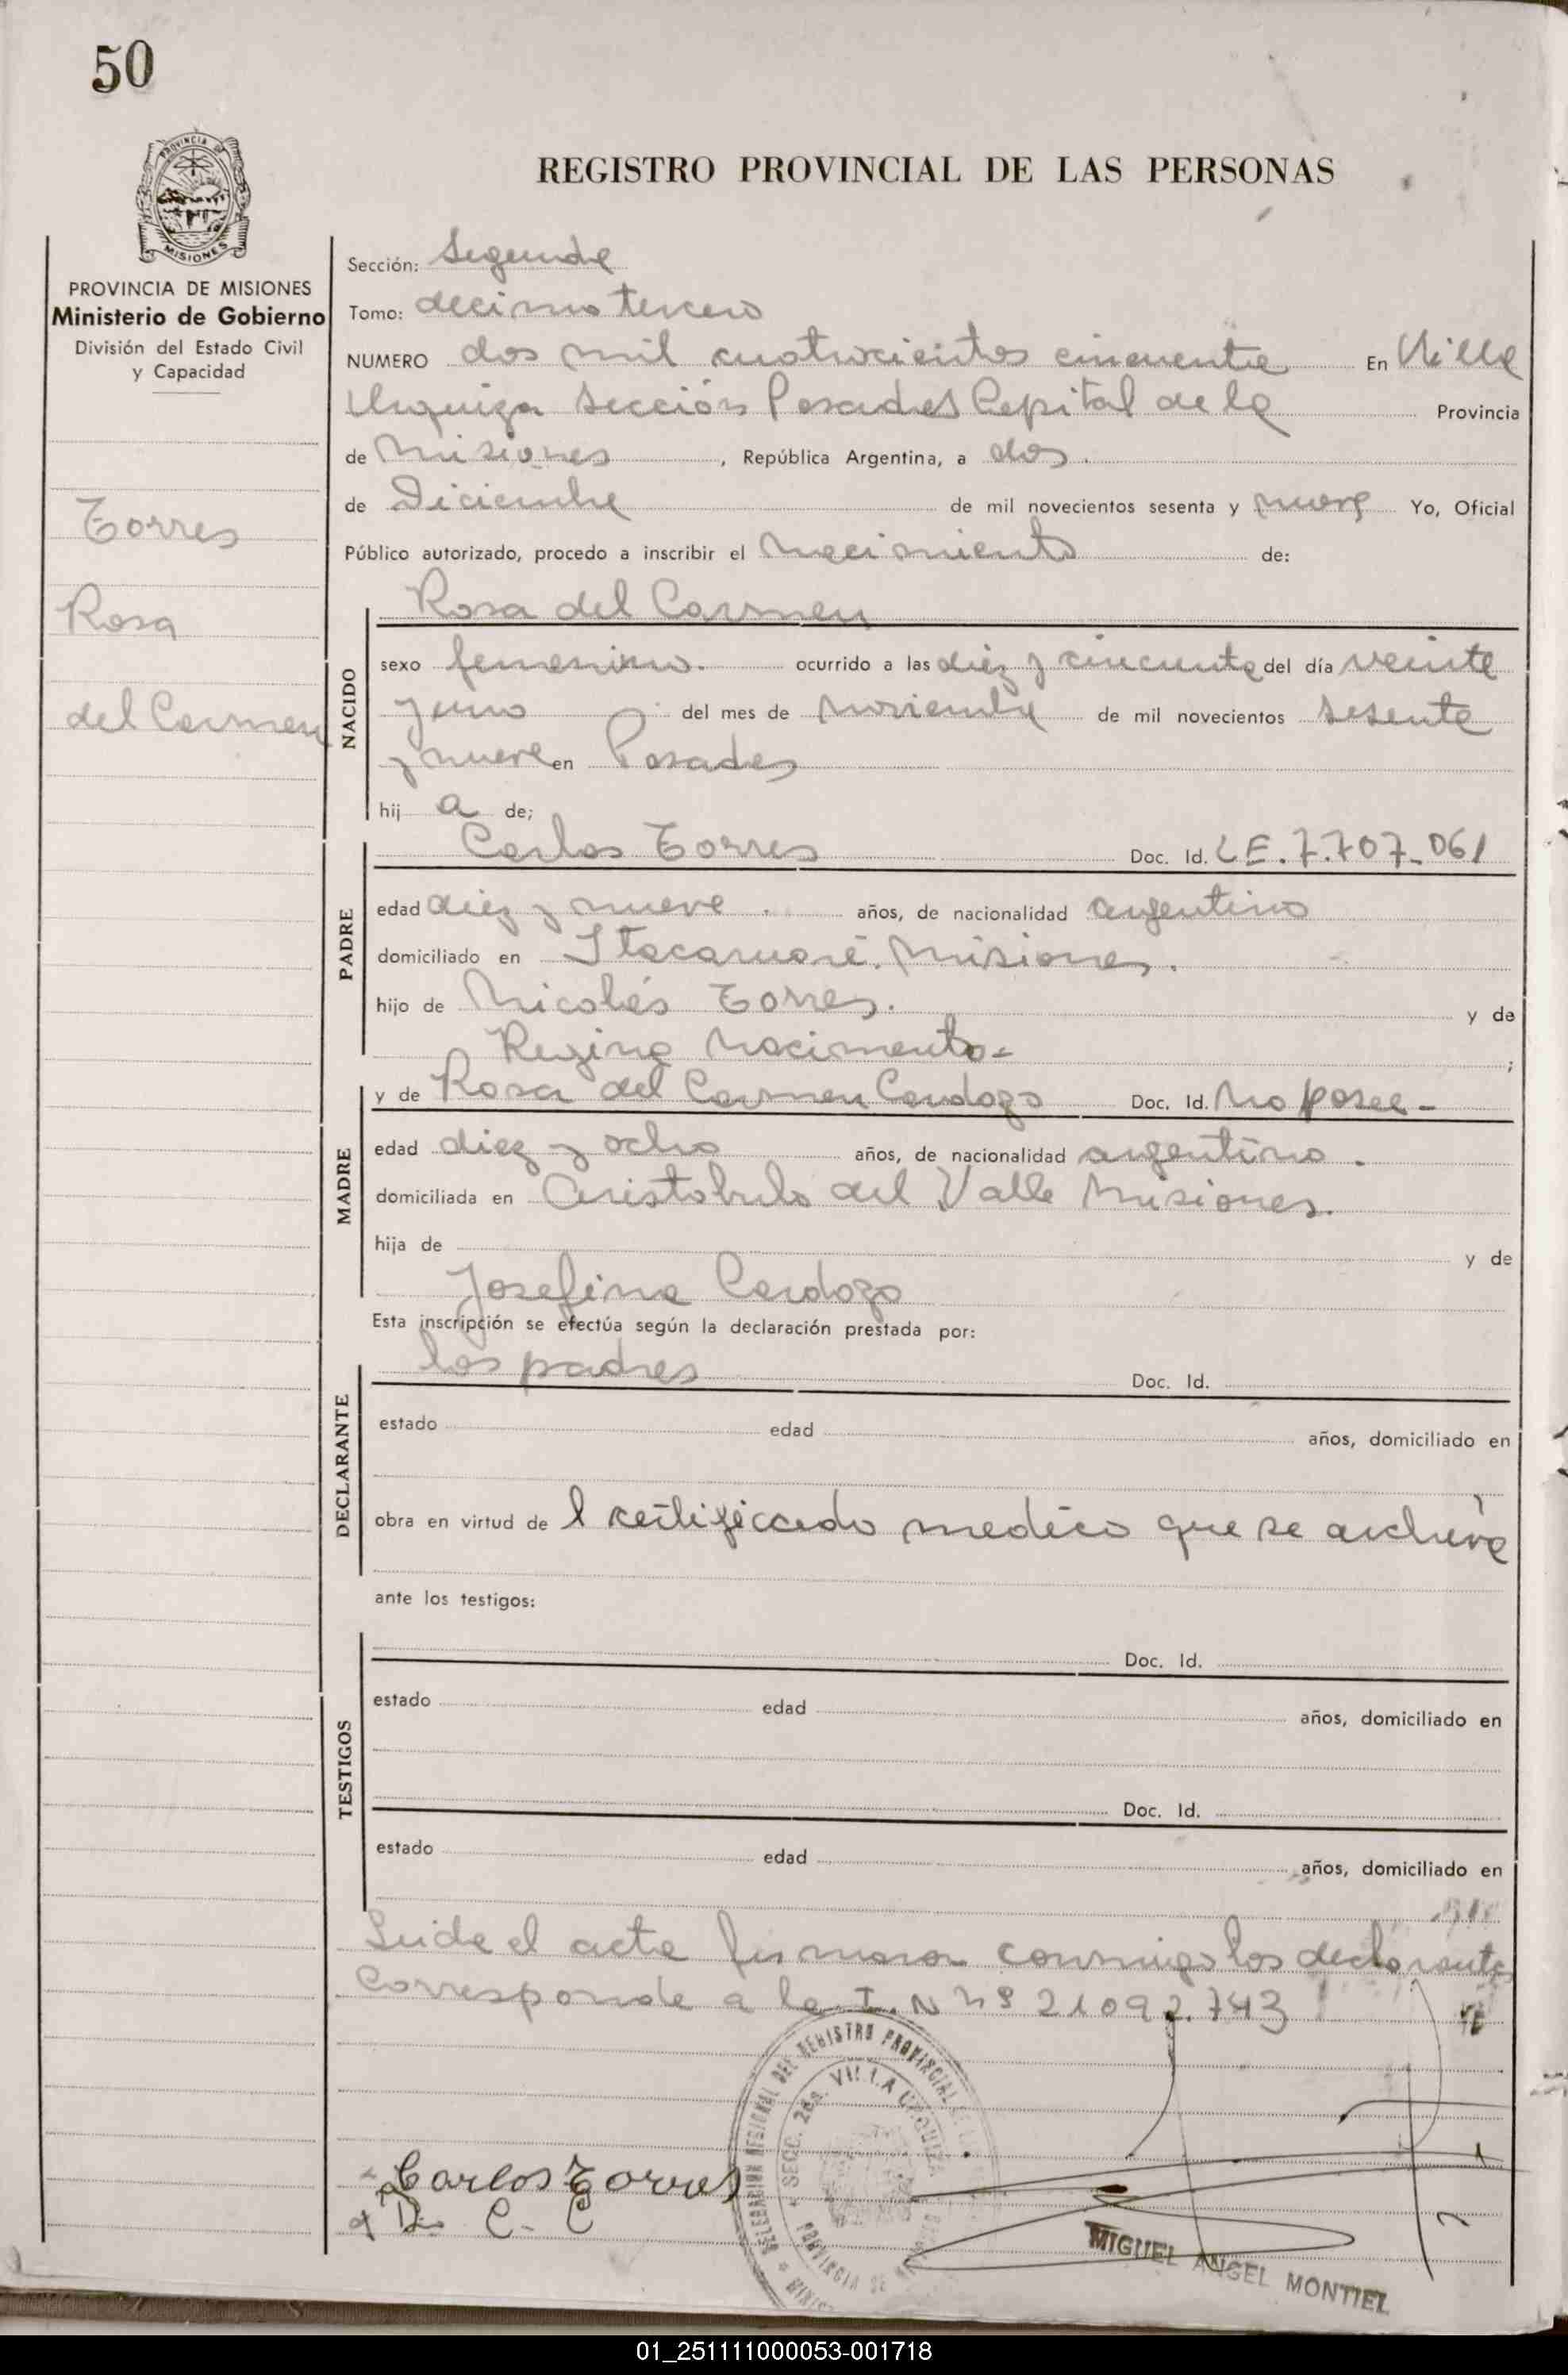 50
PROVINCIA DE
MISIONES
REGISTRO PROVINCIAL DE LAS PERSONAS
PROVINCIA DE MISIONES
Ministerio de Gobierno
División del Estado Civil
y Capacidad
Torres
Rosa
del Carmen
Sección: Segunda
Tomo: decimo tercero
NUMERO dos mil cuatrocientos cincuenta En Villa
Urquiza Sección Posadas Capital de la Provincia
de Misiones, República Argentina, a dos.
de Diciembre de mil novecientos sesenta y nueve Yo, Oficial
Público autorizado, procedo a inscribir el nacimiento de:
Rosa del Carmen
NACIDO
sexo femenino. ocurrido a las diez y cincuenta del día veinte
y uno del mes de noviembre de mil novecientos sesenta
y nueve en Posadas
hij a de;
Carlos Torres Doc. Id. LE. 7.707-061
PADRE
edad diez y nueve. años, de nacionalidad argentino
domiciliado en Itacaruaré. Misiones.
hijo de Nicolás Torres. y de
Regina Nacimento-;
y de Rosa del Carmen Cardozo Doc. Id. No posee-
MADRE
edad diez y ocho años, de nacionalidad argentina.
domiciliada en Aristobulo del Valle Misiones.
hija de y de
Josefina Cardozo
Esta inscripción se efectúa según la declaración prestada por:
los padres Doc. Id.
DECLARANTE
estado edad años, domiciliado en
obra en virtud de l certificado medico que se archiva
ante los testigos:
Doc. Id.
TESTIGOS
estado edad años, domiciliado en
Doc. Id.
estado edad años, domiciliado en
Leida el acta firmaron conmigo los declarantes
Corresponde a la I. N nº 21092.743
DELEGACION REGIONAL DEL REGISTRO PROVINCIAL DE
SECC. 2da. VILLA URQUIZA
PROVINCIA DE
Carlos Torres
R. C. C
MIGUEL ANGEL MONTIEL
01_251111000053-001718